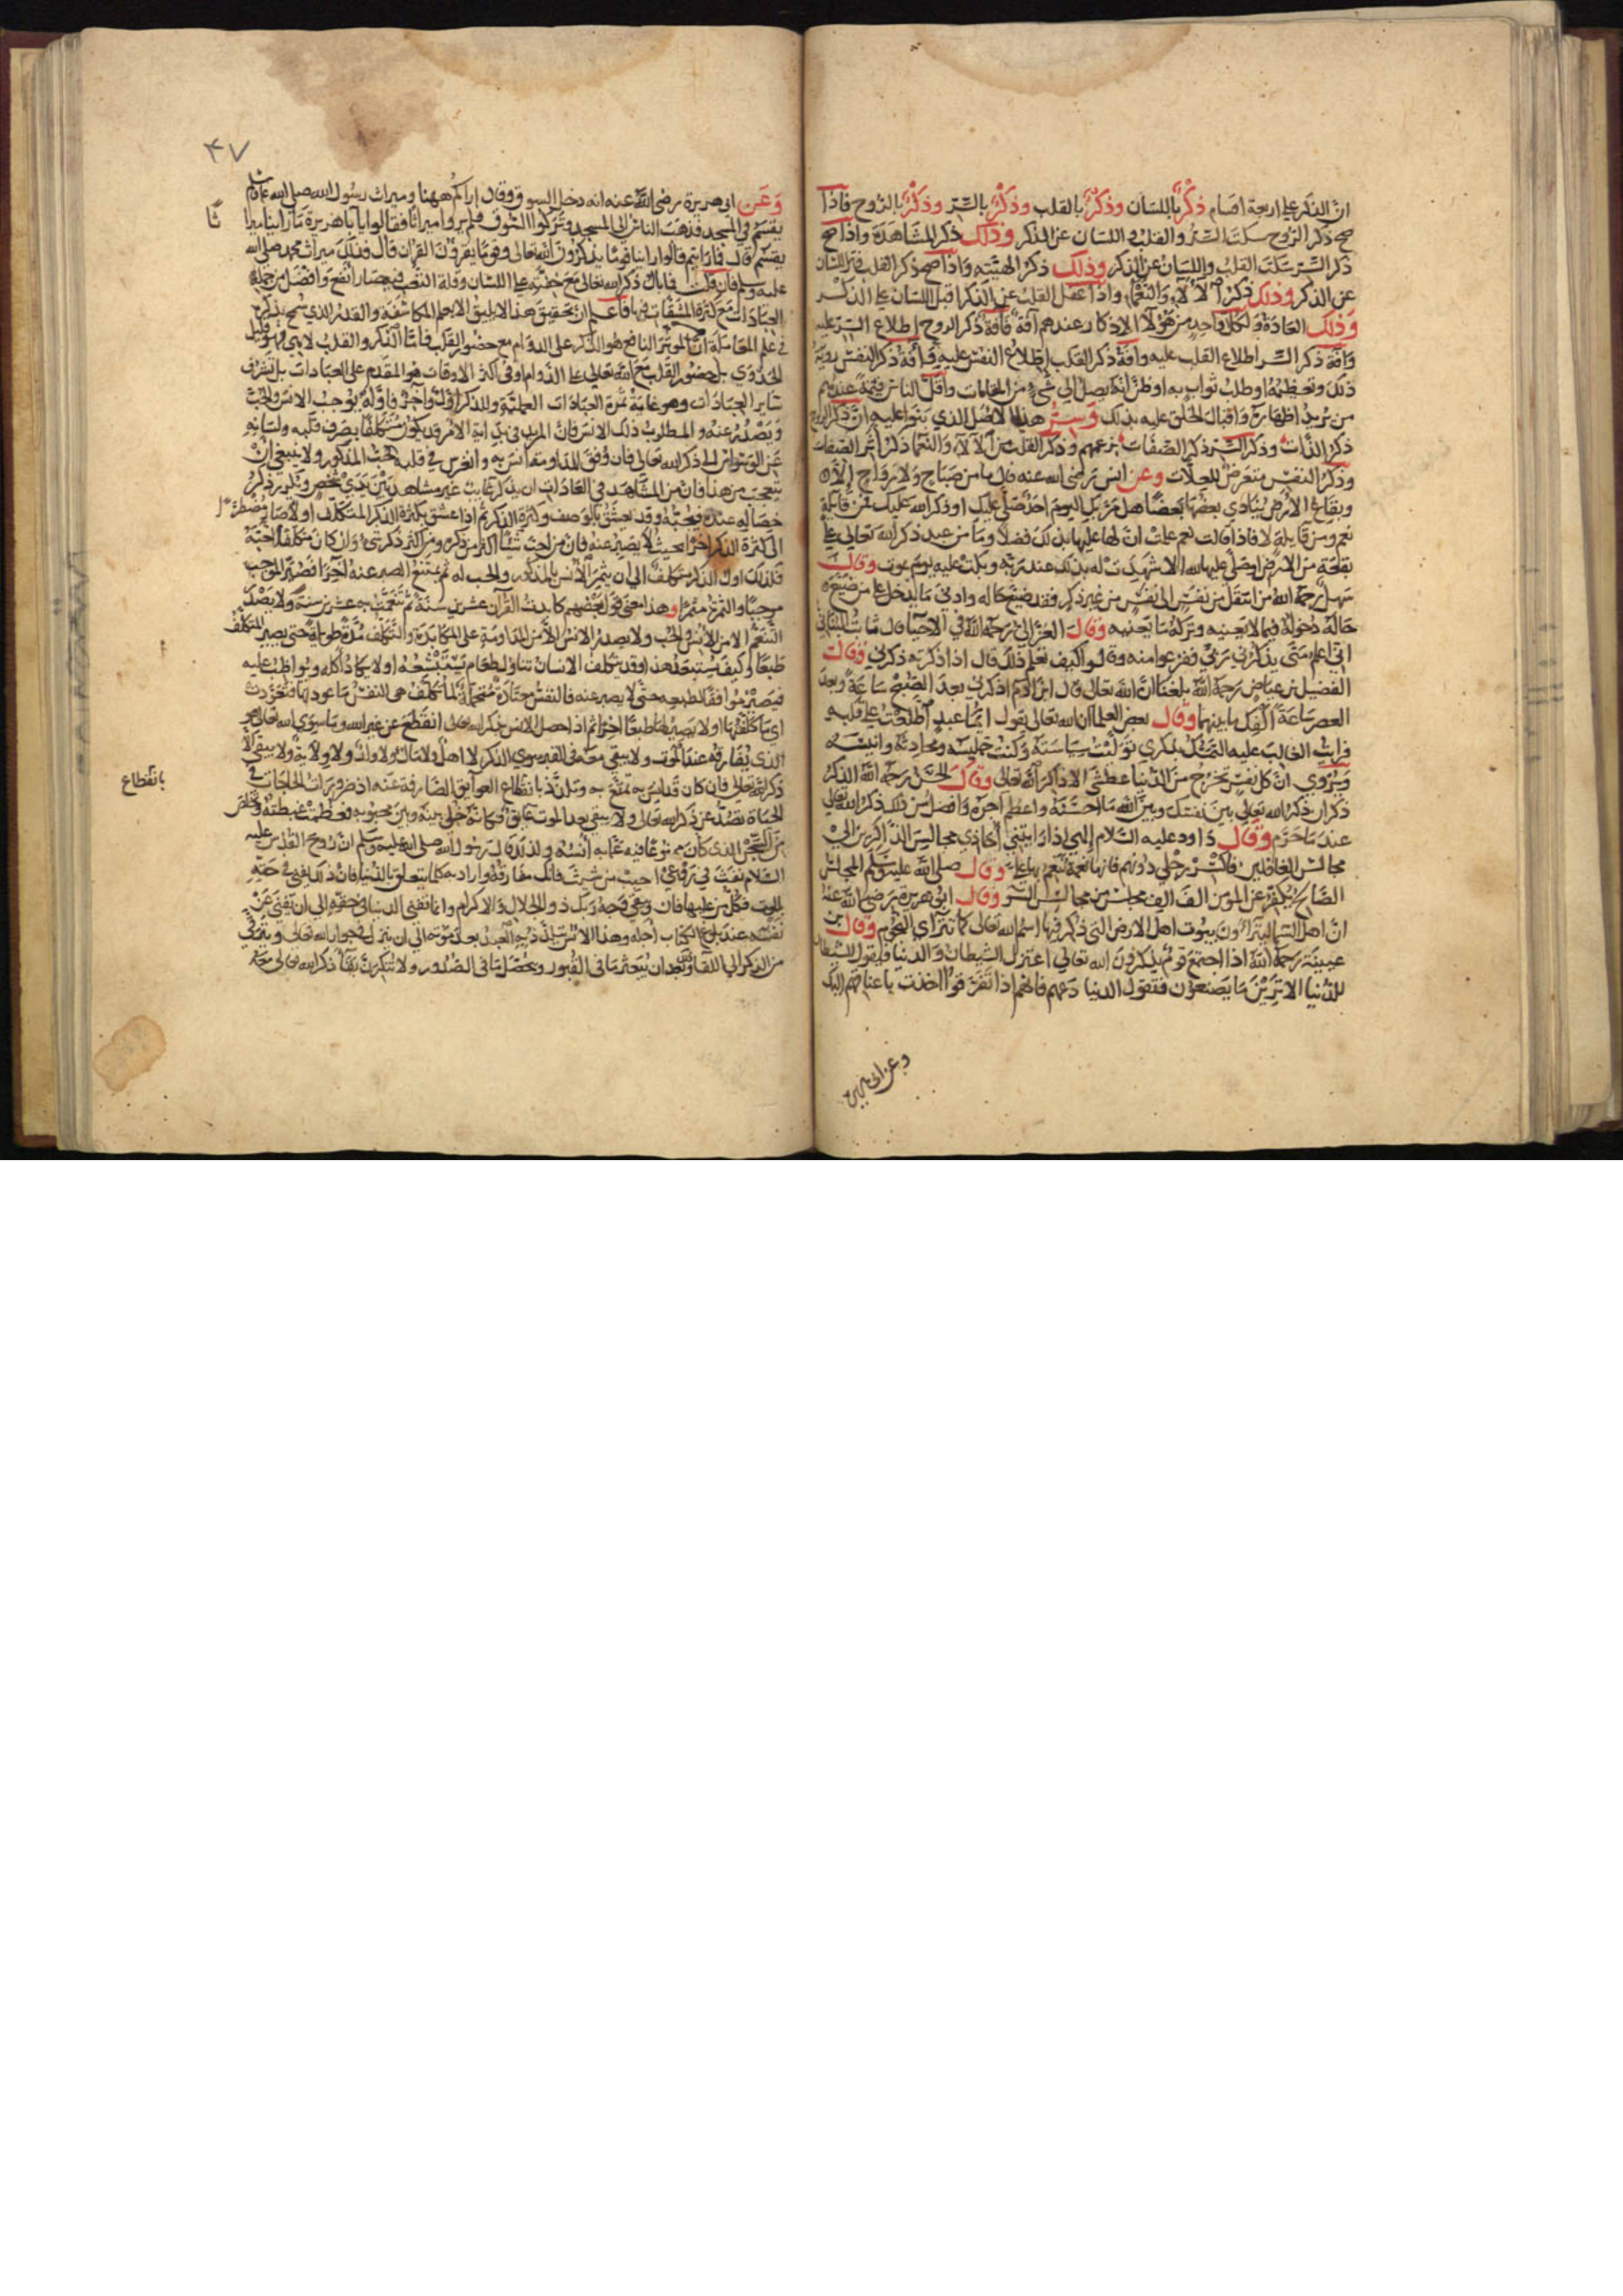 انّ الذكر علي اربعة اقسام ذكرٌ باللسان وذكرٌ بالقلب وذكرٌ بالسّر وذكرٌ بالروح فاذا
صح ذكر الروح سكت السّر والقلب واللسان عن الذكر وذلك ذكر المشاهدة واذا صح
ذكر السّر سكت القلب واللسان عن الذكر وذلك ذكر الهيبة واذا صح ذكر القلب فتر اللسان
عن الذكر وذلك ذكر الآلآء والنعماء واذا غفل القلب عن الذكر اقبل اللسان علي الذكر
وذلك العادة ولكل واحد من هؤلآء الاذكار عندهم آفة فآفة ذكر الروح اطلاع السّر عليه
وآفة ذكر السّر اطلاع القلب عليه وآفة ذكر القلب اطلاع النفس عليه وآفة ذكر النفس روية
ذلك وتعظيمه او طلب ثواب به او ظن انه يصل الي شيء من المقامات واقل الناس قيمة عندهم
من يريد اظهاره واقبال الخلق عليه بذلك وسِرّ هذا الاصل الذي بنوا عليه ان ذكر الروح
ذكر الذات وذكر السّر ذكر الصفات بزعمهم وذكر القلب من الآلآء والنعما ذكر اثر الصفات
وذكر النفس متعرض للعلات وعن انس رضي الله عنه قال ما من صباح ولا رواح إلّا
وبقاع الارض ينادي بعضها بعضًا هل مرّ بك اليوم احد صلّي عليك او ذكر الله عليك فمن قايلة
نعم ومن قايلة لا فاذا قالت نعم علمت ان لها عليها بذلك فضلا وما من عبد ذكر الله تعالي علي
بقعة من الارض او صلي عليها لله الا شهدت له بذلك عند ربّه وبكت عليه يوم يموت وقال
سهل رحمه الله من انتقل من نفس الى نفس من غير ذكر فقد ضيع حاله وادني ما يدخل علي من ضيّع
حاله دخوله فيما لا يعنيه وتركه ما يعنيه وقال الغزالى رحمه الله في الاحيا قال ثابت البناني
اني اعلم متى يذكرني ربي ففزعوا منه وقالوا كيف تعلم ذلك قال اذا ذكرته ذكرني وقال
الفضيل بن عياض رحمه الله بلغنا ان الله تعالى قال ابن آدم اذكرني بعد الصبح ساعة وبعد
العصر ساعة اكفك ما بينهما وقال بعض العلما ان الله تعالى يقول ايما عبد اطلعت علي قلبه
فرايت الغالب عليه التمسّك بذكري توليت سياسته وكنت جليسه ومحادثه وانيسه
ويروي ان كل نفس تخرج من الدنيا عطشى الا ذاكر الله تعالى وقال الحسن رحمه الله الذكر
ذكران ذكر الله تعالي بين نفسك وبين الله ما احسنه واعظم اجره وافضل من ذلك ذكر الله تعالي
عند ما حرّم وقال داود عليه السّلام إلهي اذا رايتني اجاوز مجالس الذاكرين الى
مجالس الغافلين فاكسر رجلي دونهم فانها نعمة تنعم بها علي وقال صلي الله عليه وسلم المجلس
الصالح يكفر عن المؤمن الف الف مجلس من مجالس السّوء وقال ابو هريرة رضي الله عنه
ان اهل السّما ليتراءون بيوت اهل الارض التى ذكر فيها اسم الله تعالى كما تتراءى النجوم وقال بن
عيينة رحمه الله اذا اجتمع قوم يذكرون الله تعالي اعتزل الشيطان والدنيا فيقول الشيطان
للدنيا الا ترين ما يصنعون فتقول الدنيا دعهم فانهم اذا تفرقوا اخذت باعناقهم اليك
وعن ابي هريرة
٤٧
وعن ابى هريرة رضي الله عنه انه دخل السوق وقال اراكم ههنا وميراث رسول الله صلي الله عليه وسلم
يقسم في المسجد فذهب الناس الى المسجد وتركوا السوق فلم يروا ميراثا فقالوا يا ابا هريرة ما راينا ميراثا
يقسم قال فما رايتم قالوا راينا قومًا يذكرون الله تعالى وقومًا يقرؤن القران قال فذلك ميراث محمد صلي الله
عليه وسلم فان قلت فما بال ذكر الله تعالى مع خفته علي اللسان وقلة التعب فيه صار انفع وافضل من جملة
العبادات مع كثرة المشقات فيها فاعلم ان تحقيق هذا لا يليق الا بعلم المكاشفة والقدر الذي يسمح بذكره
في علم المعاملة ان الموثر النافع هو الذكر على الدوام مع حضور القلب فاما الذكر والقلب لاهي فهو قليل
الجدوي بل حضور القلب مع الله تعالي علي الدوام او في اكثر الاوقات هو المقدم على العبادات بل به تشرف
ساير العبادات وهو غاية ثمرة العبادات العملية وللذكر اول وآخر فاوله يوجب الانس والحب
ويصدر عنه والمطلوب ذلك الانس فان المريد في بداية الامر قد يكون متكلفا بصرف قلبه ولسانه
عن الوسواس الى ذكر الله تعالي فان وفق للمداومة انس به وانغرس في قلبه حب المذكور ولا ينبغي ان
يتعجب من هذا فان من المشاهد في العادات ان يذكر غايب غير مشاهد بين يدي شخص ويكرر ذكر
خصاله عنده فيحبه وقد يعشق بالوصف وكثرة الذكر ثم اذا عشق بكثرة الذكر المتكلف اولا صار مضطرّا
الى كثرة الذكر آخرا بحيث لا يصبر عنه فان من احب شيئا اكثر من ذكره ومن اكثر ذكر شيء وان كان متكلفا احبه
فكذلك اول الذكر متكلف الي ان يثمر الانس بالمذكور والحب له ثم يمتنع الصبر عنه آخرًا فيصير الموجب
موجبًا والثمر مثمرا وهذا معني قول بعضهم كابدت القرآن عشرين سنة ثم تنعمت به عشرين سنة ولا يصدر
التنعم الا من الانس والحب ولا يصدر الانس الا من المداومة على المكابدة والتكلف مدة طويلة حتى يصير التكلف
طبعًا وكيف يستبعد هذا وقد يتكلف الانسان تناول طعام يستبشعه اولا يكاد اكله ويواظب عليه
فيصير موافقا لطبعه حتى لا يصبر عنه فالنفس معتادة متحملة لما تتكلف هي النفس ما عودتها تتعود
اي ما كلفتها اولا يصير لها طبعًا آخرًا ثم اذا حصل الانس بذكر الله تعالى انقطع عن غير الله وما سوي الله تعالى هو
الذي يفارقه عند الموت ولا يبقى معه فى القبر سوي الذكر لا اهل ولا مال ولا ولد ولا ولاية ولا يبقي الا
ذكر الله تعالي فان كان قد انس به تمتع به وتلذذ بانقطاع العوايق الصارفة عنه اذ ضرورات الحاجات في
الحياة تصد عن ذكر الله تعالى ولا يبقي بعد الموت عايق فكانه خلى بينه وبين محبوبه فعظمت غبطته وتخلص
من السجن الذى كان ممنوعا فيه عما به انسه ولذلك قال رسول الله صلى الله عليه وسلم ان روح القدس عليه
السلام نفث في روعي احبب من احببت فانك مفارقه واراد به كلما يتعلق بالدنيا فان ذلك يفنى في حقه
بالموت فكل من عليها فان ويبقى وجه ربك ذو الجلال والاكرام وانما تفنى الدنيا في حقه الي ان تفنى عن
نفسه عند بلوغ الكتاب اجله وهذا الانس يتلذذ به العبد بعد موته الي ان ينزل في جوار الله تعالى ويترقي
من الذكر الي اللقا وذلك بعد ان يبعثر ما في القبور ويحصل ما في الصدور ولا تنكرن بقا ذكر الله تعالى معه
ثًا
بانقطاع